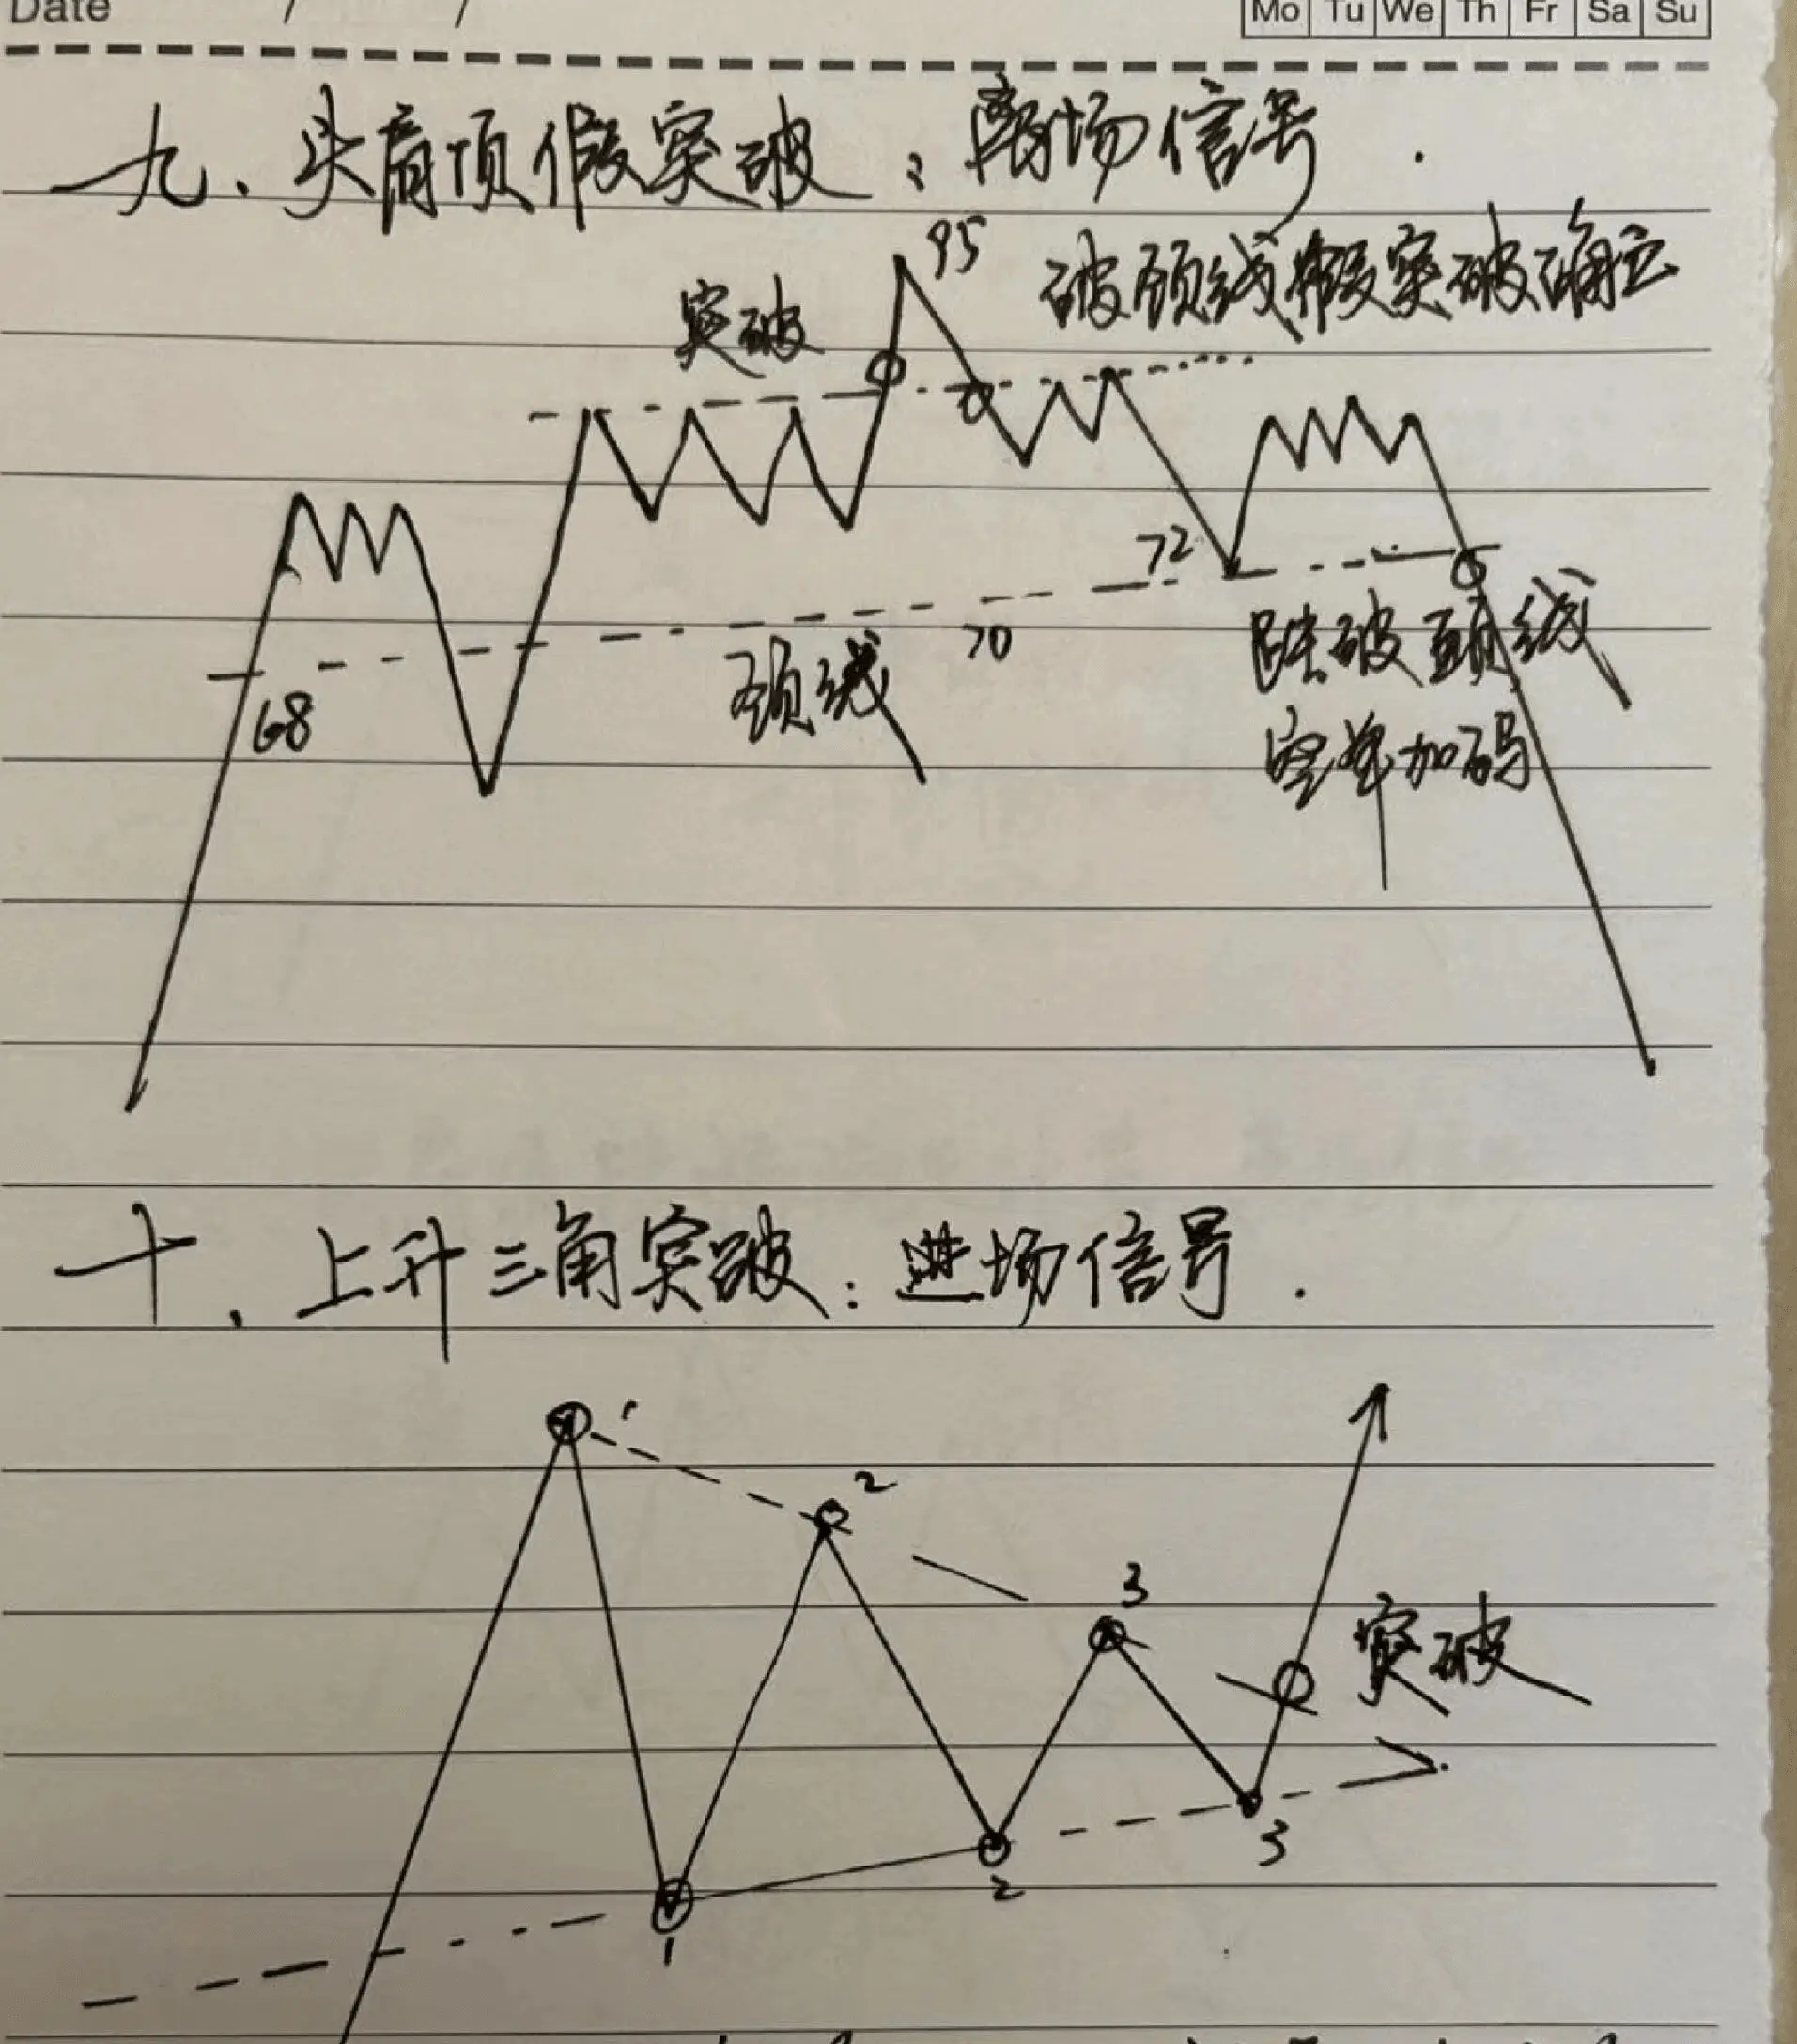 Date / /
Mo Tu We Th Fr Sa Su
九、头肩顶假突破：离场信号.
95
突破
破颈线假突破确立
72
68
颈线
70
跌破颈线
空单加码
十、上升三角突破：进场信号.
1
2
3
突破
3
2
1